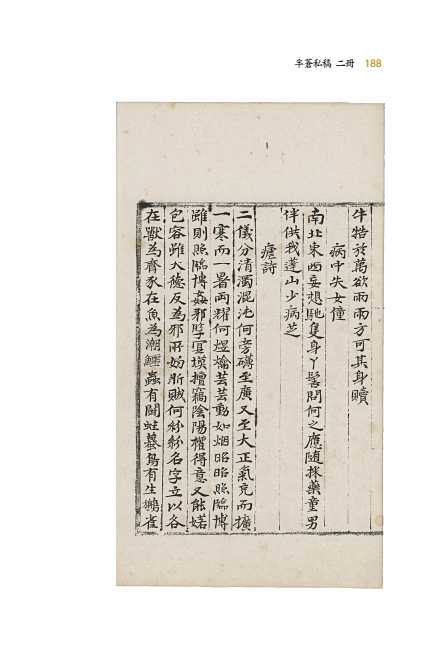 半蒼私稿 二冊 188
牛犢於萬欲兩兩方可其身贖
病中失女僮
南北東西妄想馳隻身丫髻問何之應隨採藥童男
伴供我蓬山少病芝
瘧詩
二儀分清濁混沌何旁礴至廣又至大正氣充而擴
一寒而一暑兩耀何煜爚芸芸動如烟昭昭照臨博
雖則照臨博姦邪孽宜墣擅竊陰陽權得意又能婼
包容雖大德反為邪所妨所賊何紛紛名字立以各
在獸為齊豕在魚為潮鱷蟲有鬪蛙蟇鳥有生鵂雀